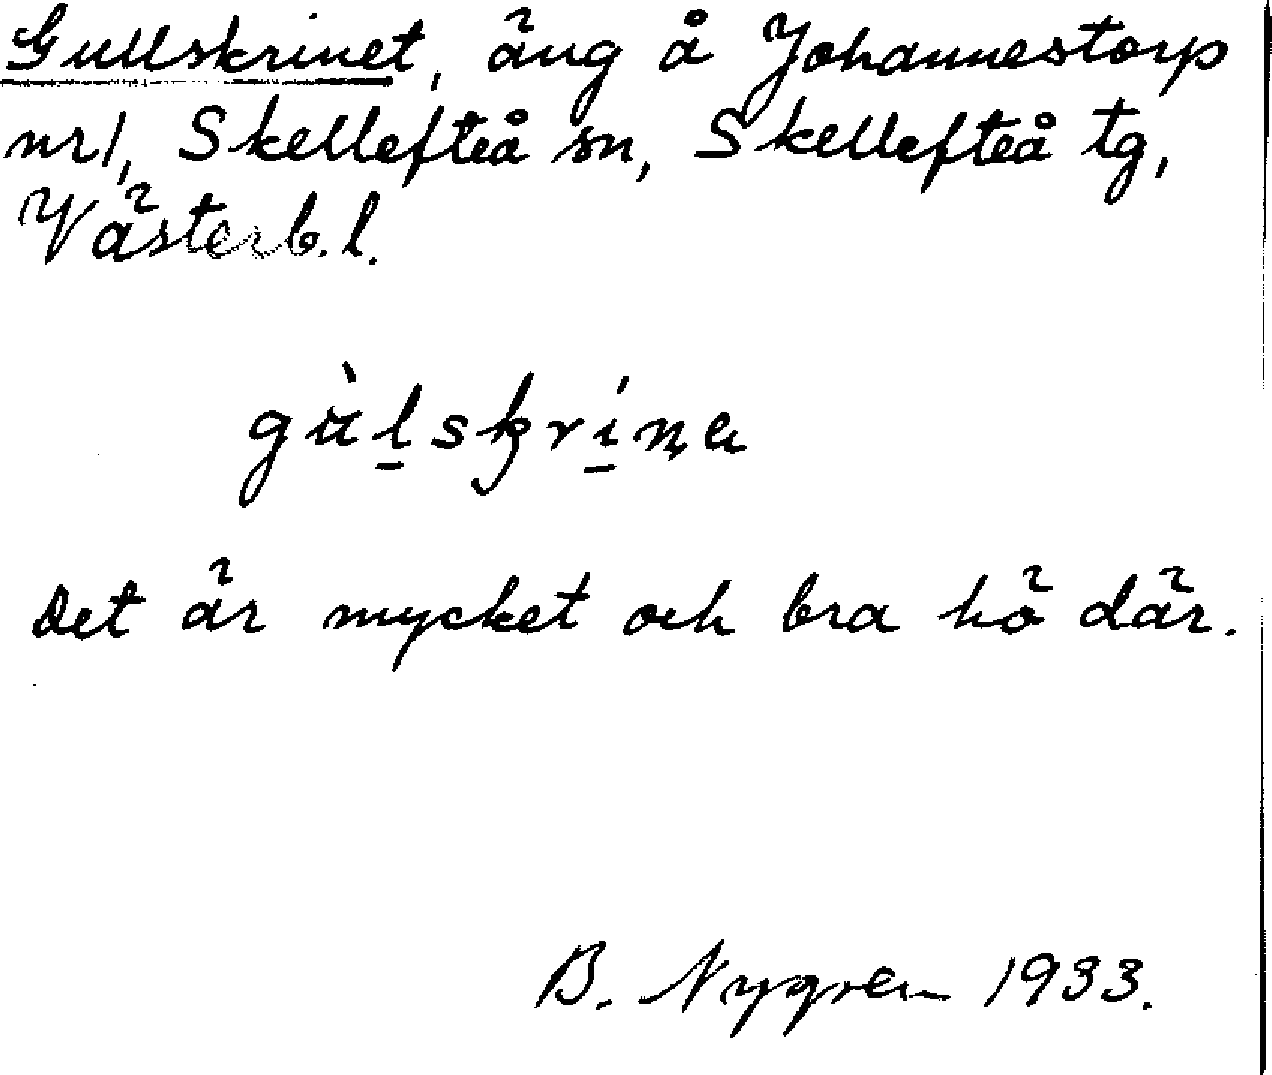 Gullskrinet, äng å Johannestorp
nr 1, Skellefteå sn, Skellefteå tg,
Västerb. l.
gùl̲skrí̲na
Det är mycket och bra hö där.
B. Nygren 1933.